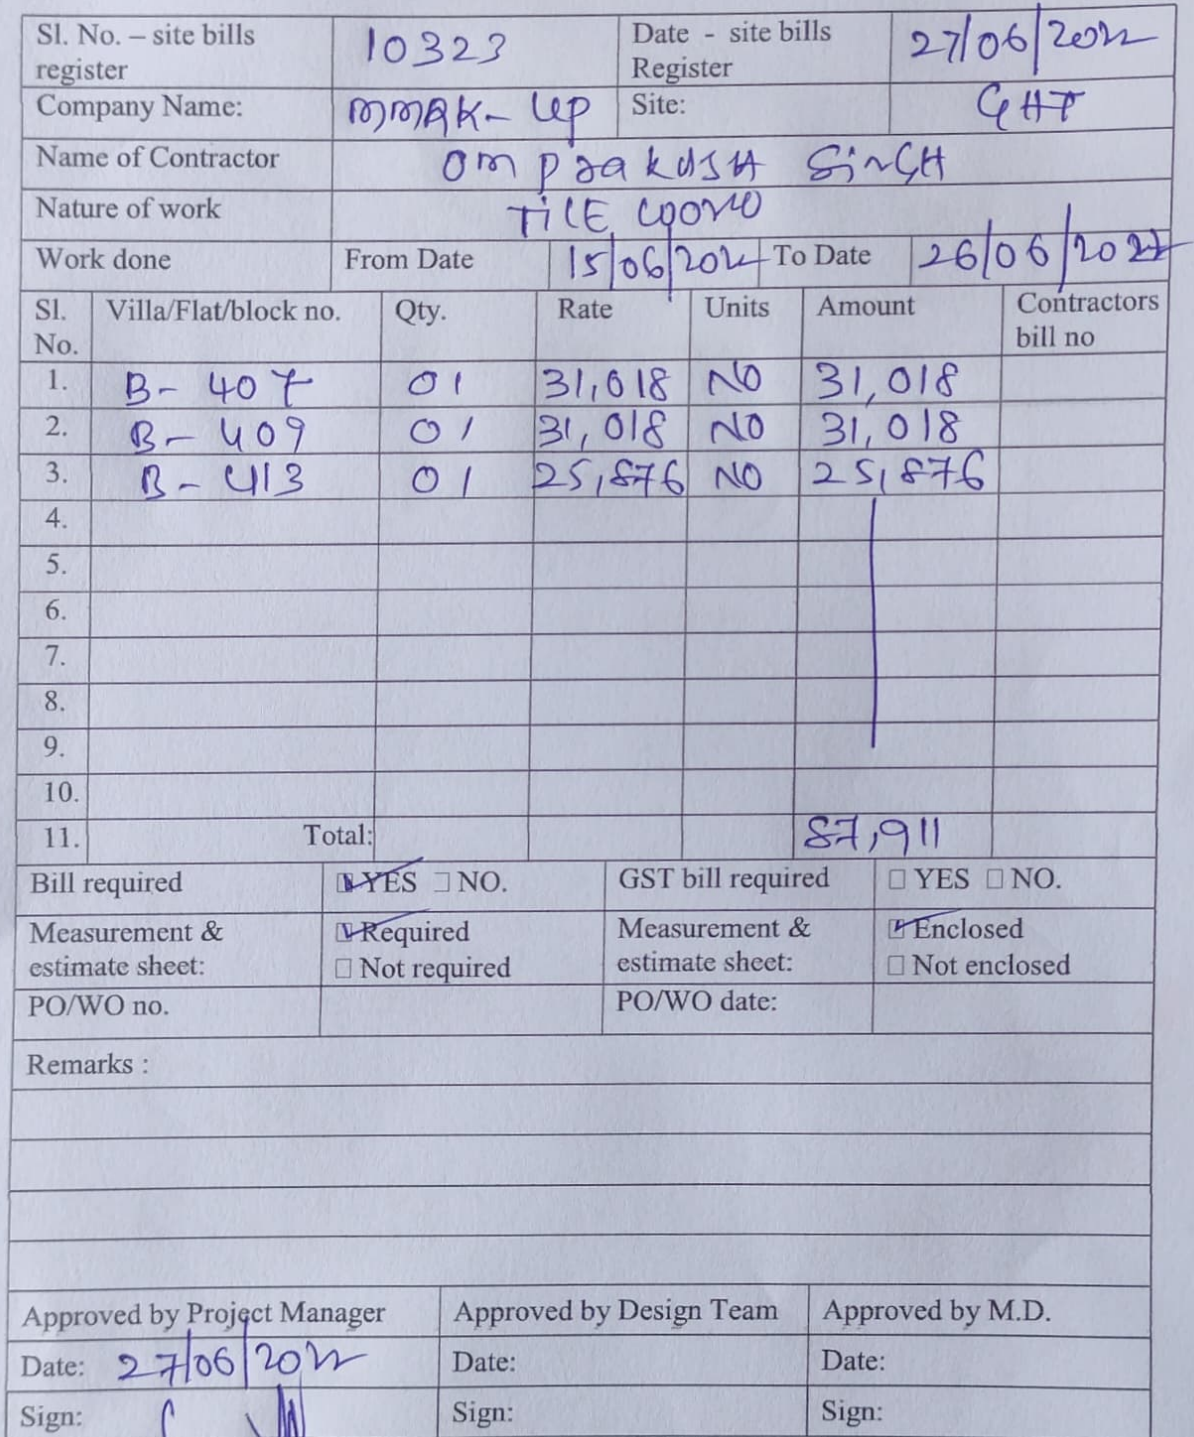 Sl. No. – site bills register 10323 Date - site bills Register 27/06/2022
Company Name: MMRK- UP Site: GHT
Name of Contractor Om prakUSH SinGH
Nature of work TiLE
Work done From Date 15/06/2022 To Date 26/06/2022
Sl. No. Villa/Flat/block no. Qty. Rate Units Amount Contractors bill no
1. B- 407 01 31,018 NO 31,018
2. B- 409 01 31,018 NO 31,018
3. B- 413 01 25,876 NO 25,876
4.
5.
6.
7.
8.
9.
10.
11. Total: 87,911
Bill required YES NO. GST bill required YES NO.
Measurement & estimate sheet: Required Not required Measurement & estimate sheet: Enclosed Not enclosed
PO/WO no. PO/WO date:
Remarks :
Approved by Project Manager Approved by Design Team Approved by M.D.
Date: 27/06/2022 Date: Date:
Sign: Sign: Sign: